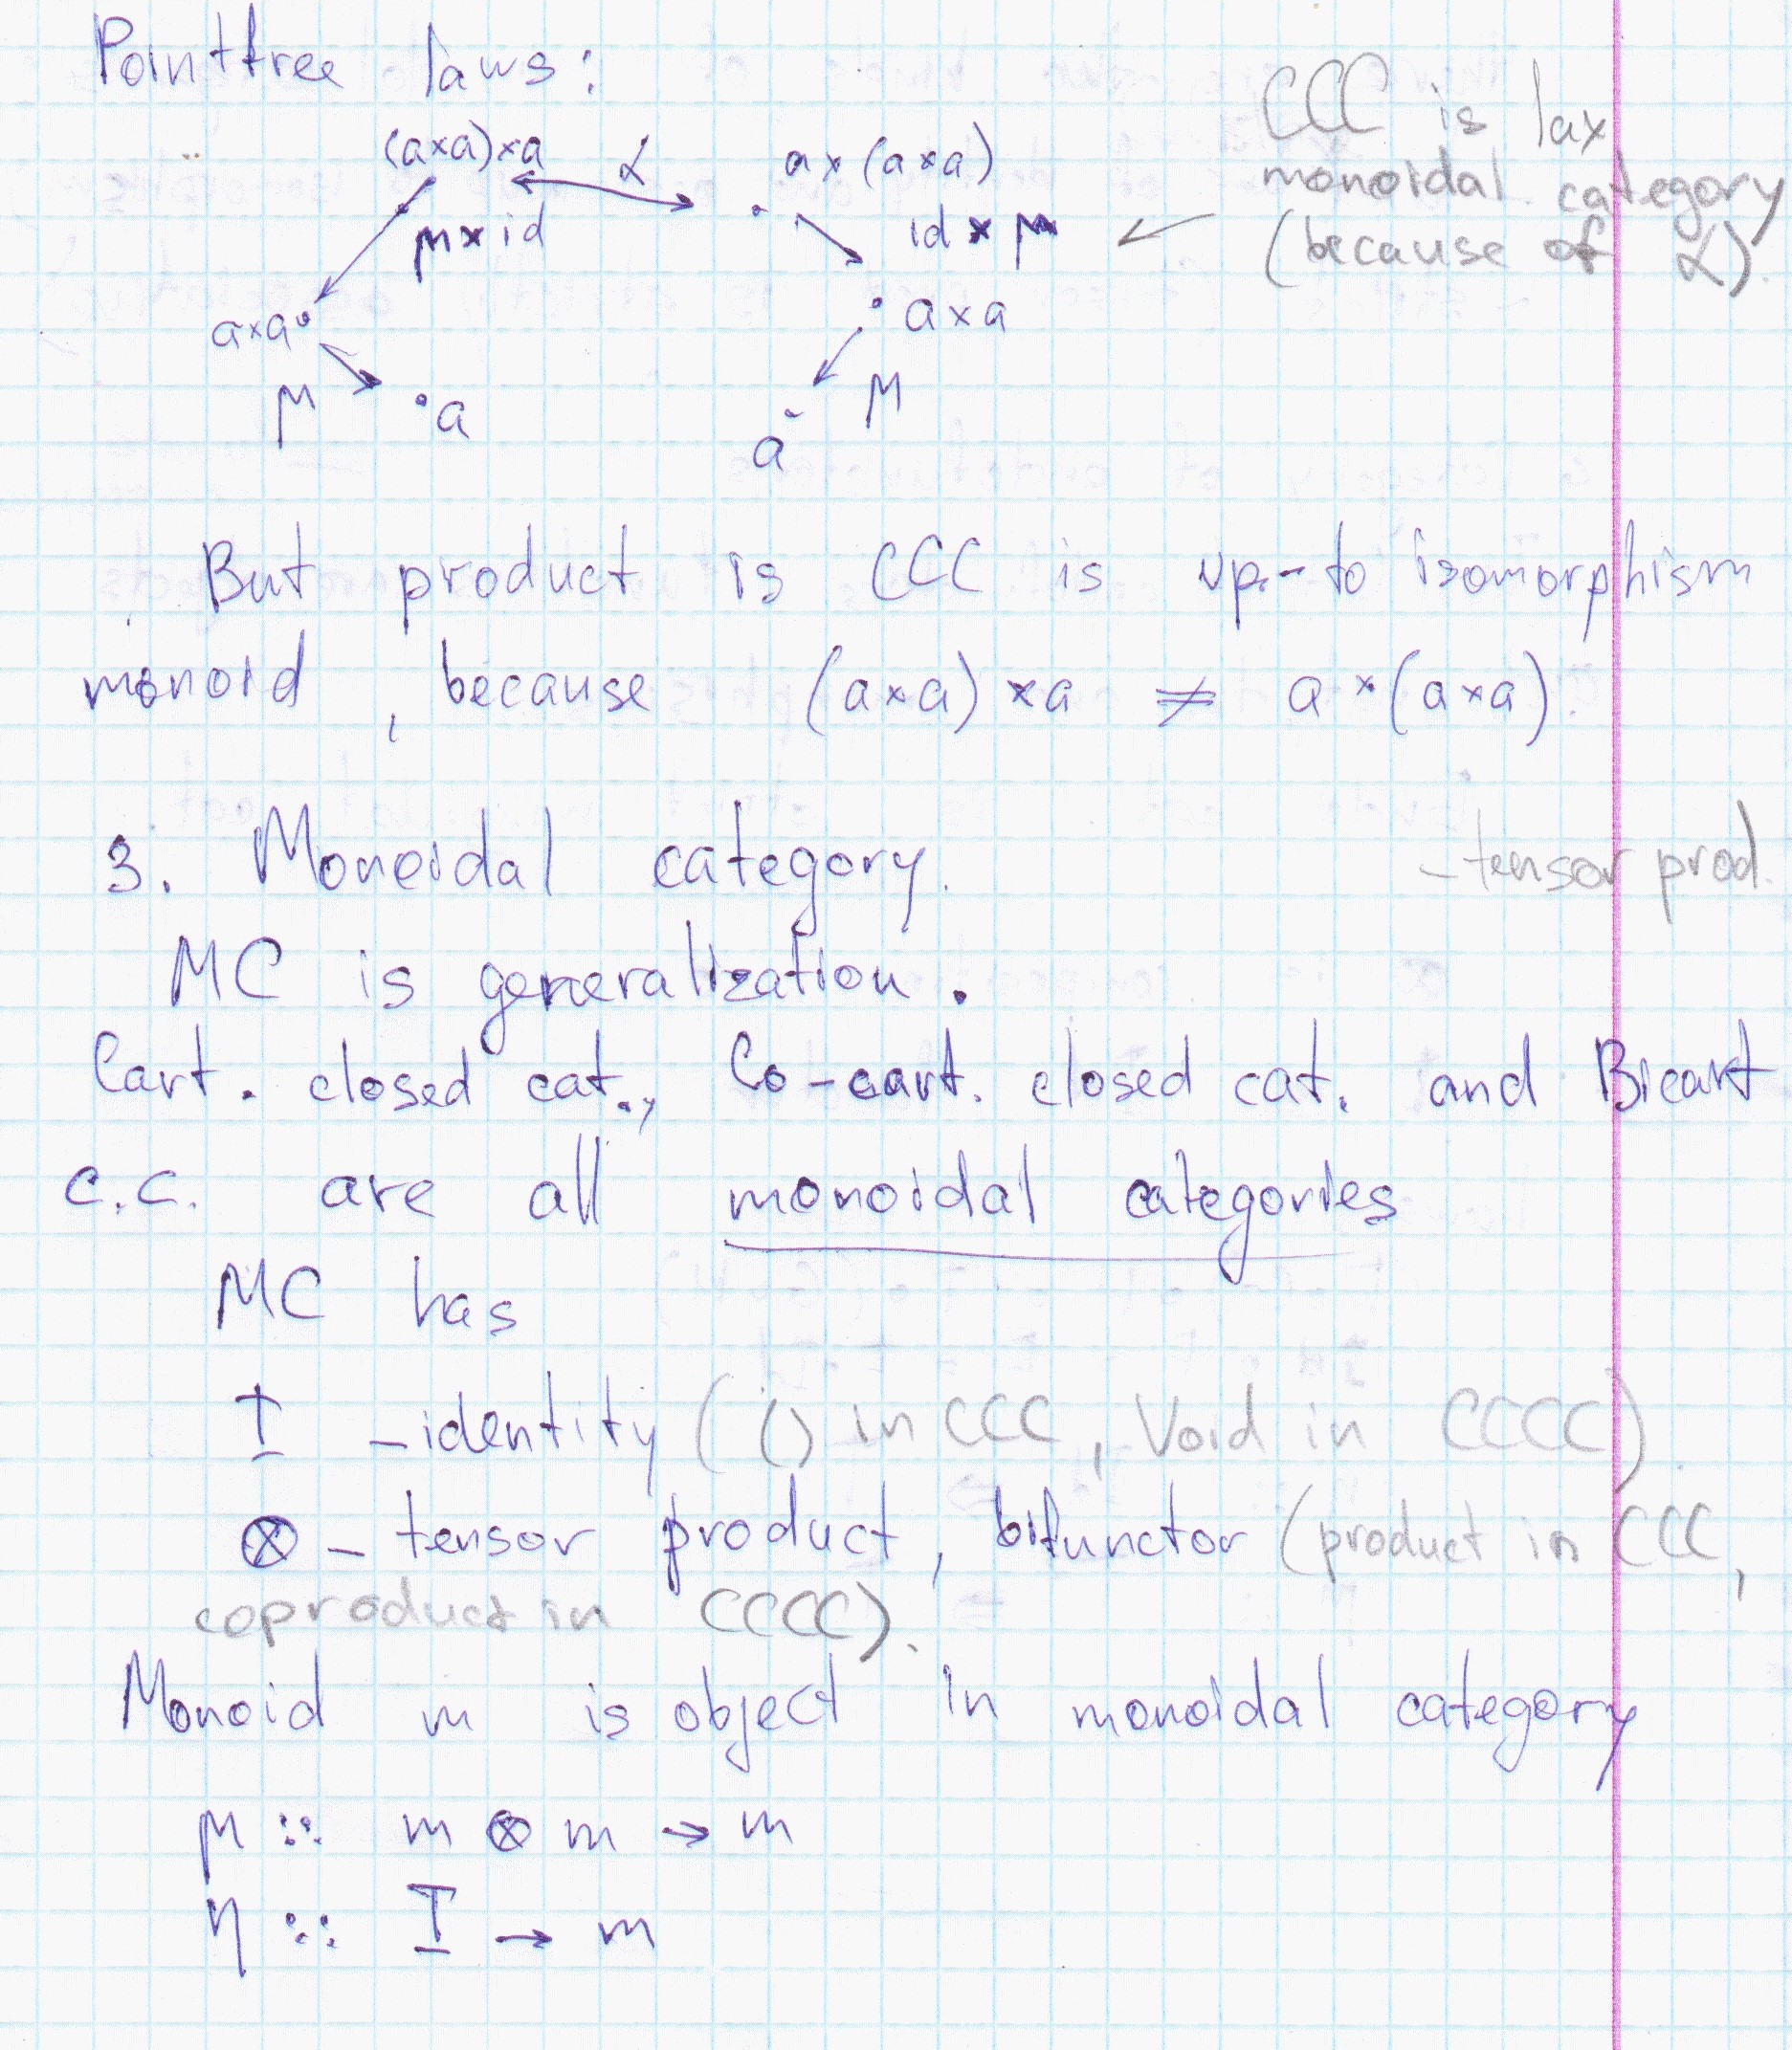 Pointfree laws:
(a×a)×a α a×(a×a)
μ×id id×μ
a×a a×a
μ a μ
a
CCC is lax
monoidal category
(because of α).
But product is CCC is up-to isomorphism
monoid, because (a×a)×a ≠ a×(a×a).
3. Monoidal category.
- tensor prod.
MC is generalization.
Cart. closed cat., Co-cart. closed cat. and Bicart
c.c. are all monoidal categories
MC has
I - identity (() in CCC, Void in CCCC).
⊗ - tensor product, bifunctor (product in CCC,
coproduct in CCCC).
Monoid m is object in monoidal category
μ :: m ⊗ m → m
η :: I → m